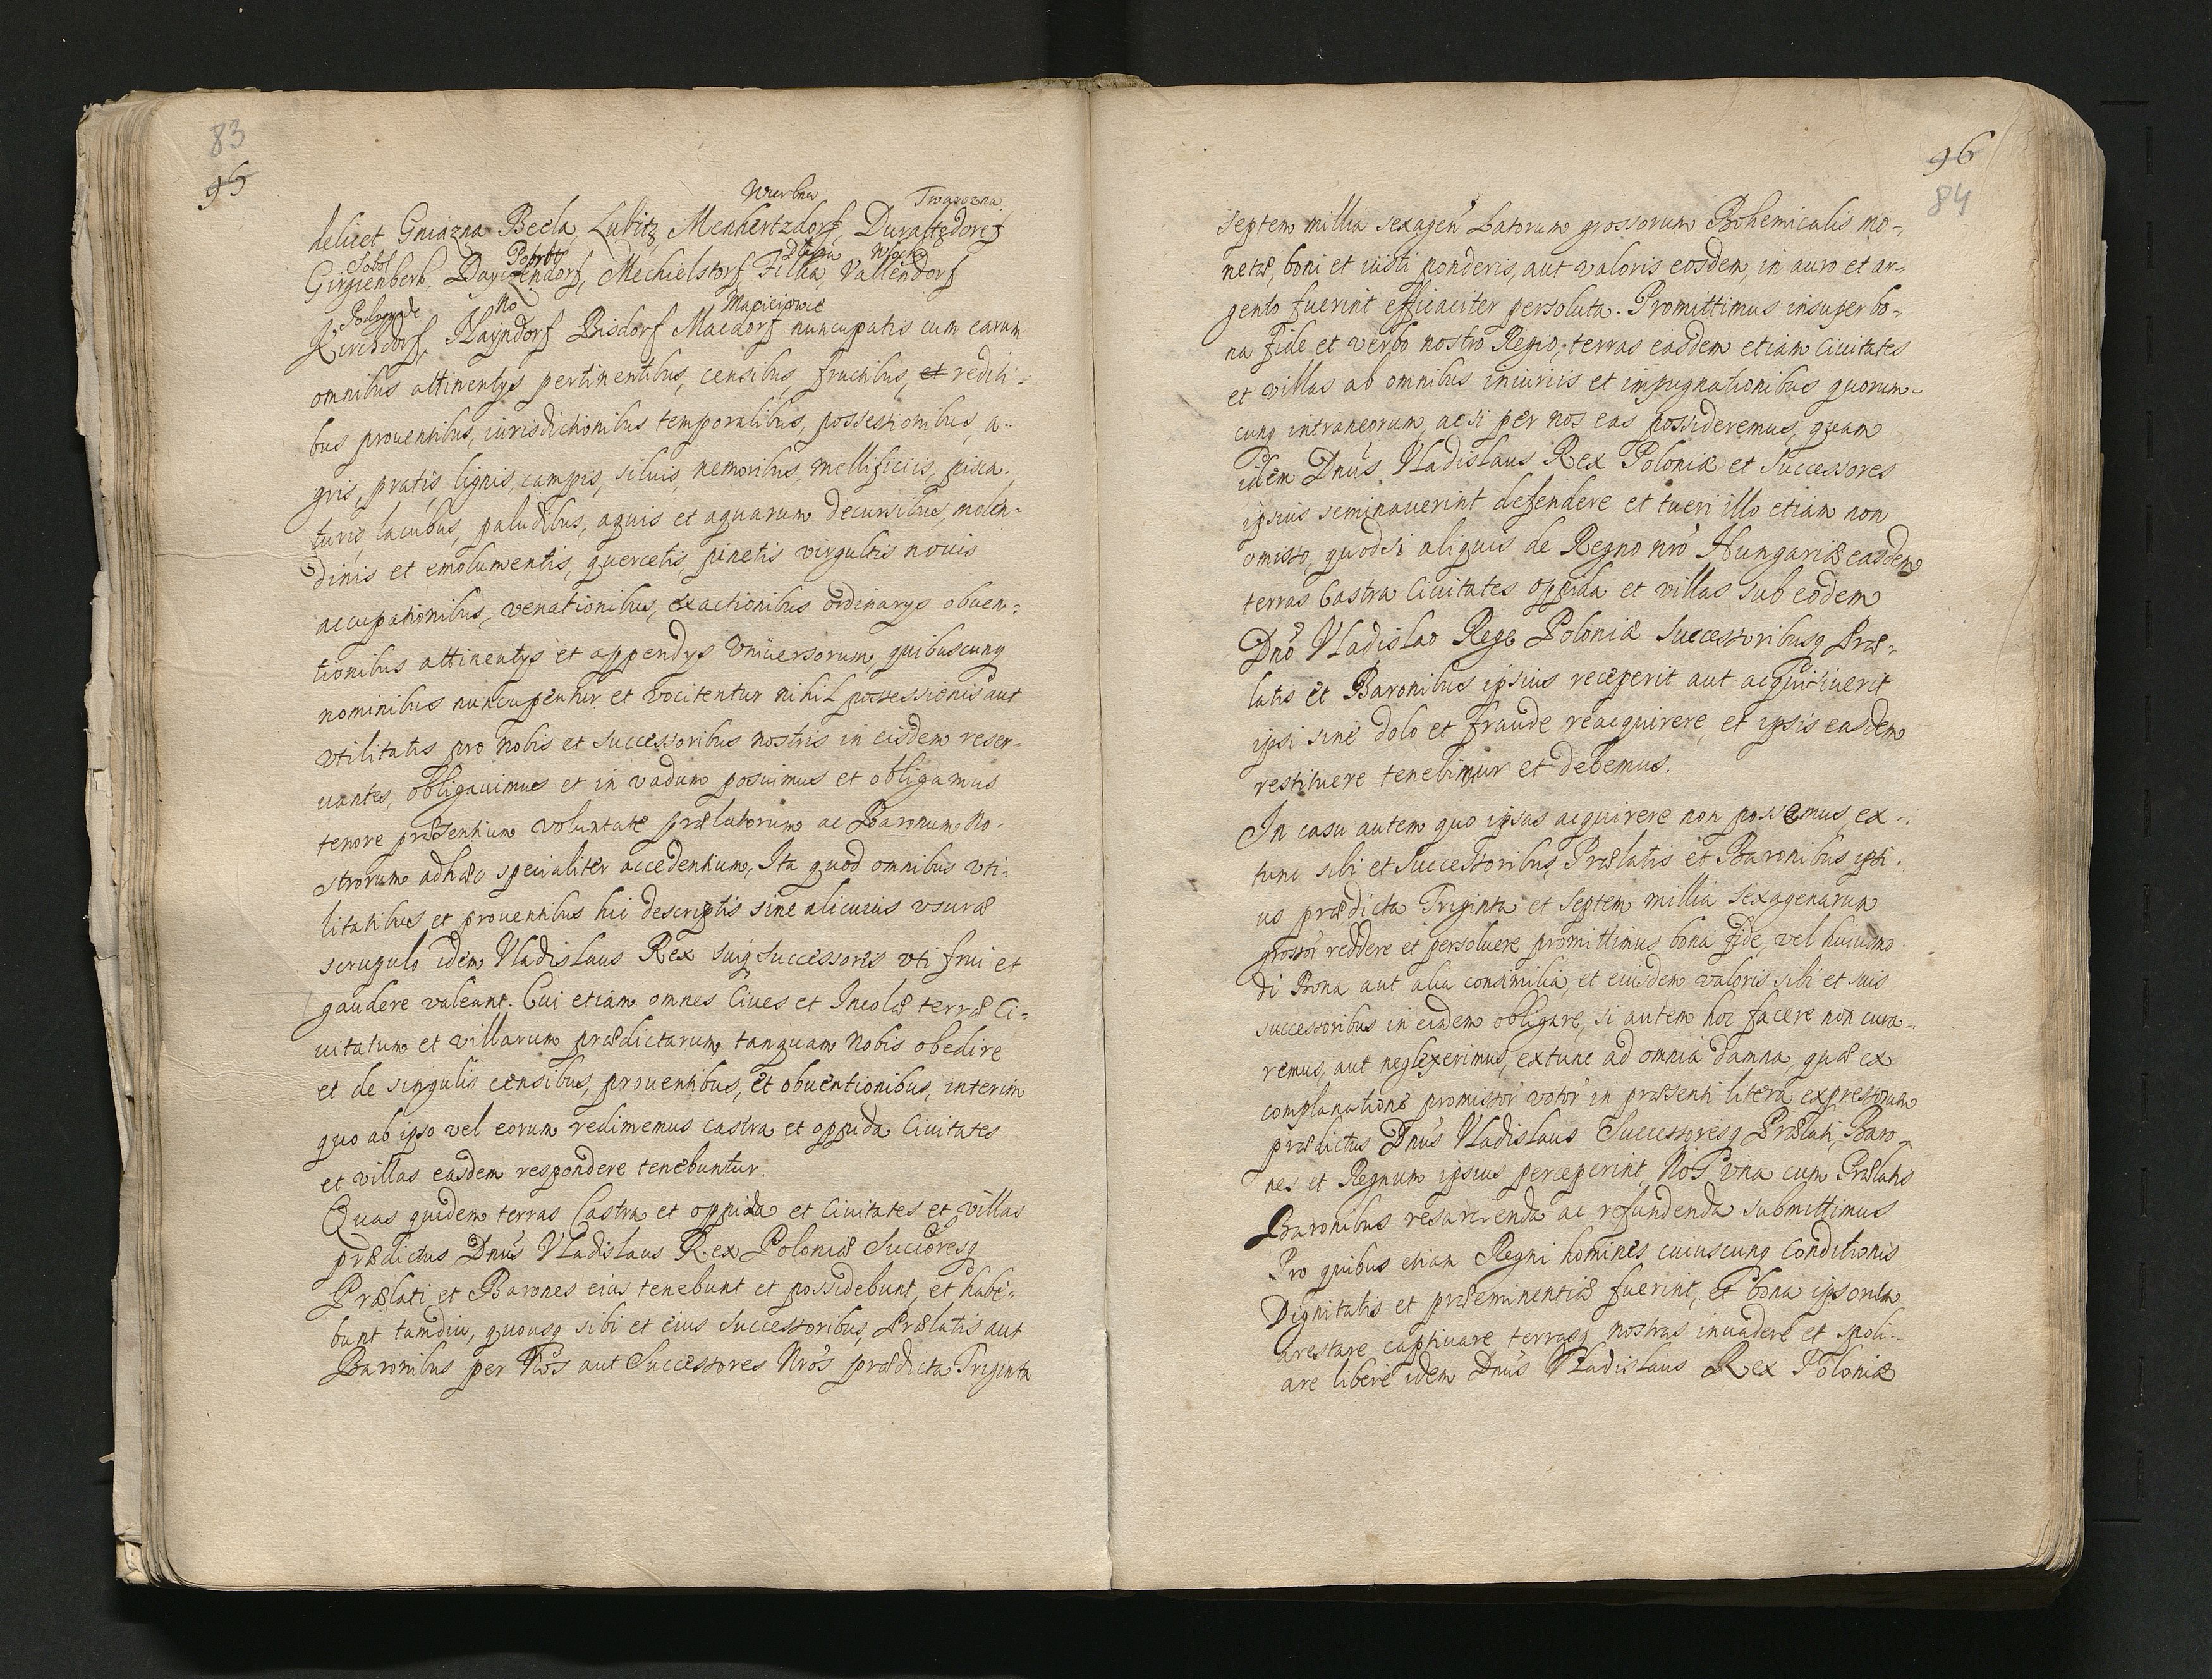 83
95
Wierbna Twarozna
delicet Gniazna Beela, Lubitz, Menhertzdorf, Duralszdoref
Sobol
Girgienberk, Dayczendorf, Mechielstorf Filkia, Vallendorf
Maciejowce
Kirchdorf, Haÿndorf Risdorf Macdorf nuncupatis cum earum
omnibus attinentÿs pertinentibus, censibus, fructibus, et rediti-
bus prouentibus, iurisdictionibus temporalibus, possessionibus, a-
gris, pratis lignis, campis, siluis, nemoribus, mellificiis, pisca-
turis, lacubus, paludibus, aquis et aquarum decursibus, molen-
dinis et emolumentis, quercetis, pinetis virgultis nouis
accupationibus, venationibus, exactionibus ordinarÿs obuen-
tionibus attinentÿs et appendÿs Vniuersorum, quibuscunq
nominibus nuncupentur et vocitentur nihil possessionis aut
vtilitatis pro nobis et successoribus nostris in eisdem reser-
uantes, obligauimus et in vadum posuimus et obligamus
tenore præsentium voluntate prælatorum ac Baronum no-
strorum adhæc specialiter accedentium, Ita quod omnibus vti-
litatibus et prouentibus hic descriptis sine alicuius vsuræ
scrupulo idem Vladislaus Rex suiq successores vti frui et
gaudere valeant. Cui etiam omnes Ciues et Incolæ terræ Ci-
uitatum et villarum prædictarum, tanquam nobis obedire
et de singulis censibus, prouentibus, et obuentionibus, interim
quo ab ipso vel eorum redimemus castra et oppida Ciuitates
et villas easdem respondere tenebuntur.
Quas quidem terras Castra et oppida et Ciuitates et villas
prædictus Dnus Vladislaus Rex Poloniæ Succoresq
Prælati et Barones eius tenebunt et possidebunt, et habe-
bunt tamdiu, quousq sibi et eius successoribus, Prælatis aut
Baronibus per Nos aut Successores Nros prædicta Triginta
96
84
septem millia sexagen Latorum grossorum Bohemicalis mo-
netæ, boni et iusti ponderis, aut valoris eosdem, in auro et ar-
gento fuerint efficaciter persoluta. Promittimus insuper bo-
na fide et verbo nostro Regio, terras easdem etiam Ciuitates
et villas ab omnibus iniuriis et impugnationibus quorum-
cunq intraneorum, ac si per nos eas possideremus, quam
idem Dnus Vladislaus Rex Poloniæ et Successores
ipsius seminauerint defendere et tueri illo etiam non
omisso, quod si aliquis de Regno nro Hungariæ easdem
terras Castra Ciuitates oppida et villas sub eodem
Dno Vladislao Rege Poloniæ Successoribusq Præ-
latis et Baronibus ipsius receperit aut acquisiuerit
ipsi sine dolo et fraude reacquirere, et ipsis easdem
restituere tenebimur et debemus.
In casu autem quo ipsas acquirere non possemus, ex-
tunc sibi et successoribus, Prælatis et Baronibus ipsi-
us prædicta Triginta et Septem millia sexagenarum
grossor reddere et persoluere promittimus bona fide, vel huiusmo-
di Bona aut alia consimilia, et eiusdem valoris sibi et suis
successoribus in eadem obligare, si autem hoc facere non cura-
remus, aut neglexerimus, extunc ad omnia damna, quæ ex
complanatione promissor votor in præsenti litera expressorum
prædictus Dnus Vladislaus Successoresq Prælati, Baro-
nes et Regnum ipsius perceperint, Nos vna cum Prælatis
Baronibus resarcienda ac refundenda submittimus
Pro quibus etiam Regni homines cuiuscunq Conditionis
Dignitatis et præeminentiæ fuerint, et bona ipsorum
arestare captiuare terrasq nostras inuadere et spoli-
are libere idem Dnus Vladislaus Rex Poloniæ